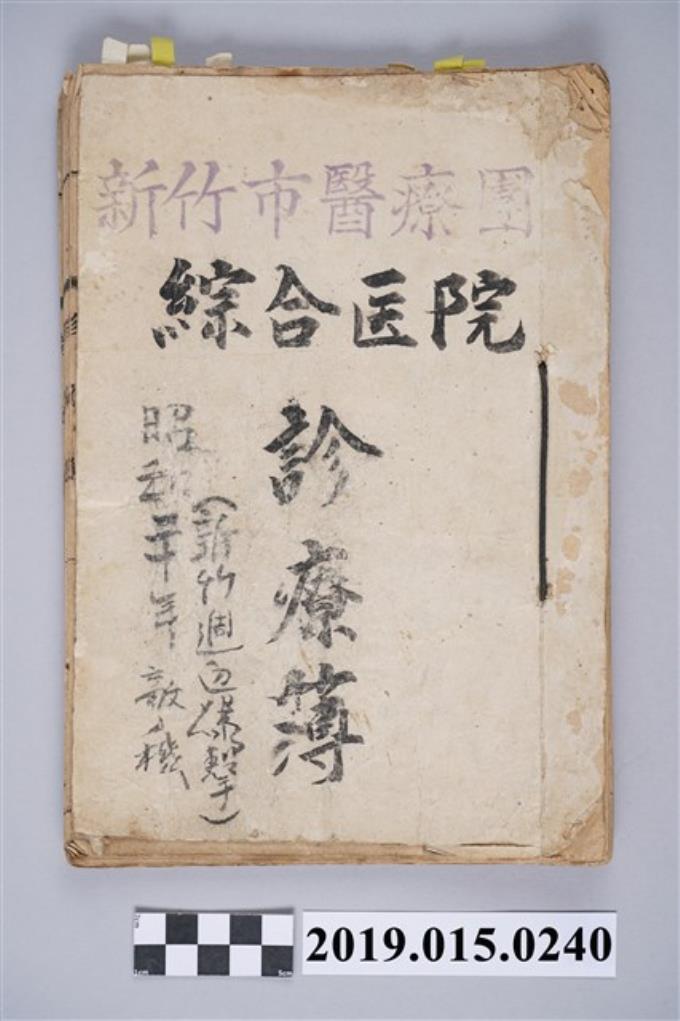 新竹市醫療團
綜合医院
診療簿
昭和二十年敵機
(新竹週辺爆撃)
2019.015.0240
1cm
5cm